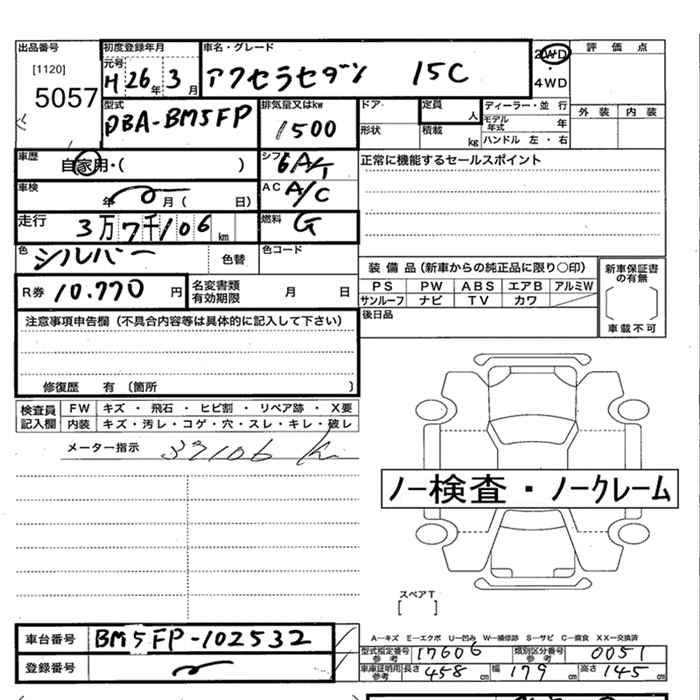 出品番号 初度登録年月 車名・グレード 2WD 評価点
[1120] 元号 H 26年 3月 アクセラセダン 15C ・
5057 4WD
型式 DBA-BM5FP 排気量又はkw 1500 ドア 定員 人 ディーラー・並行 外装 内装
形状 積載 kg モデル年式 年
ハンドル 左・右
車歴 自家用・( ) シフト 6A/T 正常に機能するセールスポイント
車検 年 月( 日) AC A/C
走行 3万7千106km 燃料 G
色 シルバー 色替 色コード
装備品(新車からの純正品に限り〇印) 新車保証書の有無
R券 10.770円 名変書類有効期限 月 日 PS PW ABS エアB アルミW
サンルーフ ナビ TV カワ [ ]
車載不可
後日品
注意事項申告欄(不具合内容等は具体的に記入して下さい)
修復歴 有(箇所 )
検査員記入欄 FW キズ・飛石・ヒビ割・リペア跡・X要
内装 キズ・汚レ・コゲ・穴・スレ・キレ・破レ
メーター指示 37106 K
ノー検査・ノークレーム
スペアT
[ ]
車台番号 BM5FP-102532 A―キズ E―エクボ U―凹み W―補修跡 S―サビ C―腐食 XX―交換済
型式指定番号参考 17606 類別区分番号参考 0051
登録番号 車車証明用参考 長さ 458cm 幅 179cm 高さ 145cm